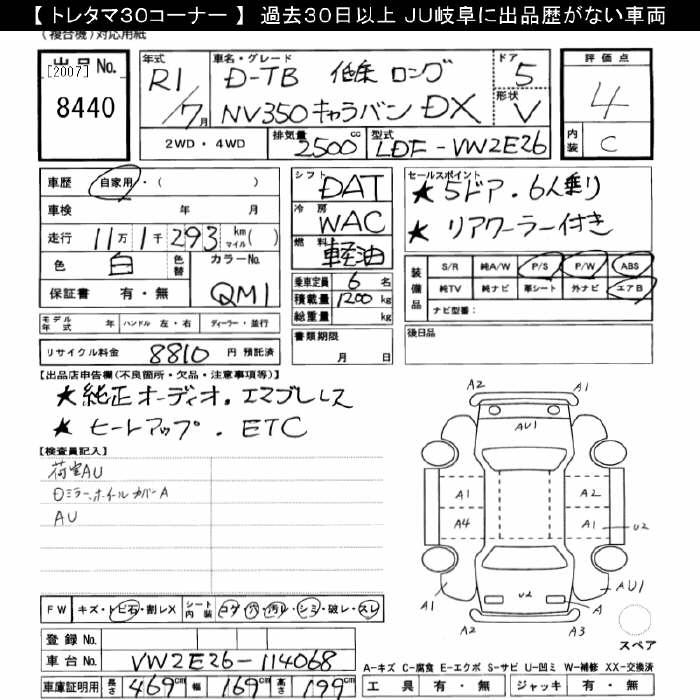 【 トレタマ30コーナー 】 過去30日以上 JU岐阜に出品歴がない車両
(複合機)対応用紙
出品No. [2007]
8440
年式 R1/7月
車名・グレード D-TB 低床 ロング
NV350キャラバン DX
ドア 5
形状 V
2WD・4WD 排気量 2500cc 型式 LDF-VW2E26
評価点 4
内装 C
車歴 自家用・( )
車検 年 月
走行 11万1千293 km マイル( )
色 白 色替 カラーNo. QM1
保証書 有・無
シフト DAT
冷房 WAC
燃料 軽油
乗車定員 6名
積載量 1200kg
総重量 kg
書類期限 月 日
セールスポイント
★5ドア.6人乗り
★リアクーラー付き
装備品 S/R 純A/W P/S P/W ABS
純TV 純ナビ 革シート 外ナビ エアB
ナビ型番:
後日品
モデル年式 年 ハンドル 左・右 ディーラー・並行
リサイクル料金 8810円 預託済
【出品店申告欄(不良箇所・欠品・注意事項等)】
★純正オーディオ.エマブレレス
★ヒートアップ.ETC
【検査員記入】
荷室AU
Dミラー、ホイルカバーA
AU
A2 A1
AU1
A1 A2
A4 A1 U2
A1 U2 A AU1
A2 A3
スペア
FW キズ・トビ石・割レX シート内装 コゲ・穴・汚レ・シミ・破レ・スレ
登録No.
車台No. VW2E26-114068
車庫証明用 長さ 469cm 幅 169cm 高さ 199cm
A-キズ C-腐食 E-エクボ S-サビ U-凹ミ W-補修 XX-交換済
工具 有・無 ジャッキ 有・無